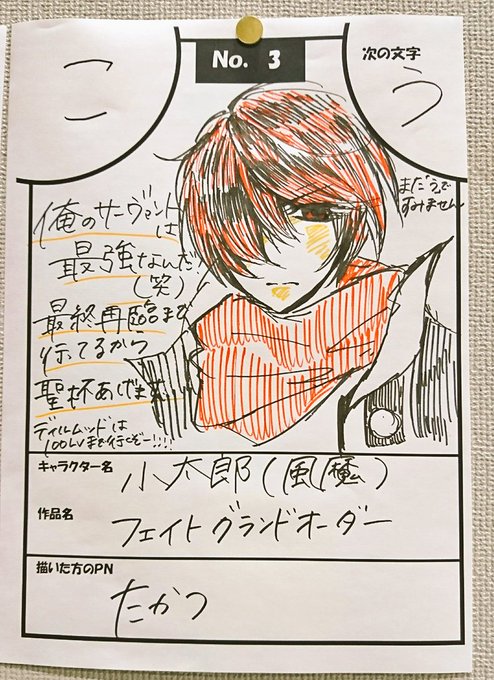 こ
No. 3
次の文字
う
まだうで
すみません
俺のサーヴァント
は
最強なんだ!
(笑)
最終再臨まで
行ってるから
聖杯あげます…
ディルムッドは
100Lvまで行くぞー!!!!
キャラクター名
小太郎(風魔)
作品名
フェイトグランドオーダー
描いた方のPN
たかつ